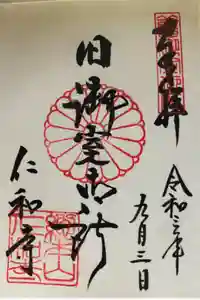 奉拝
令和三年
九月三日
旧御室御所
仁和寺